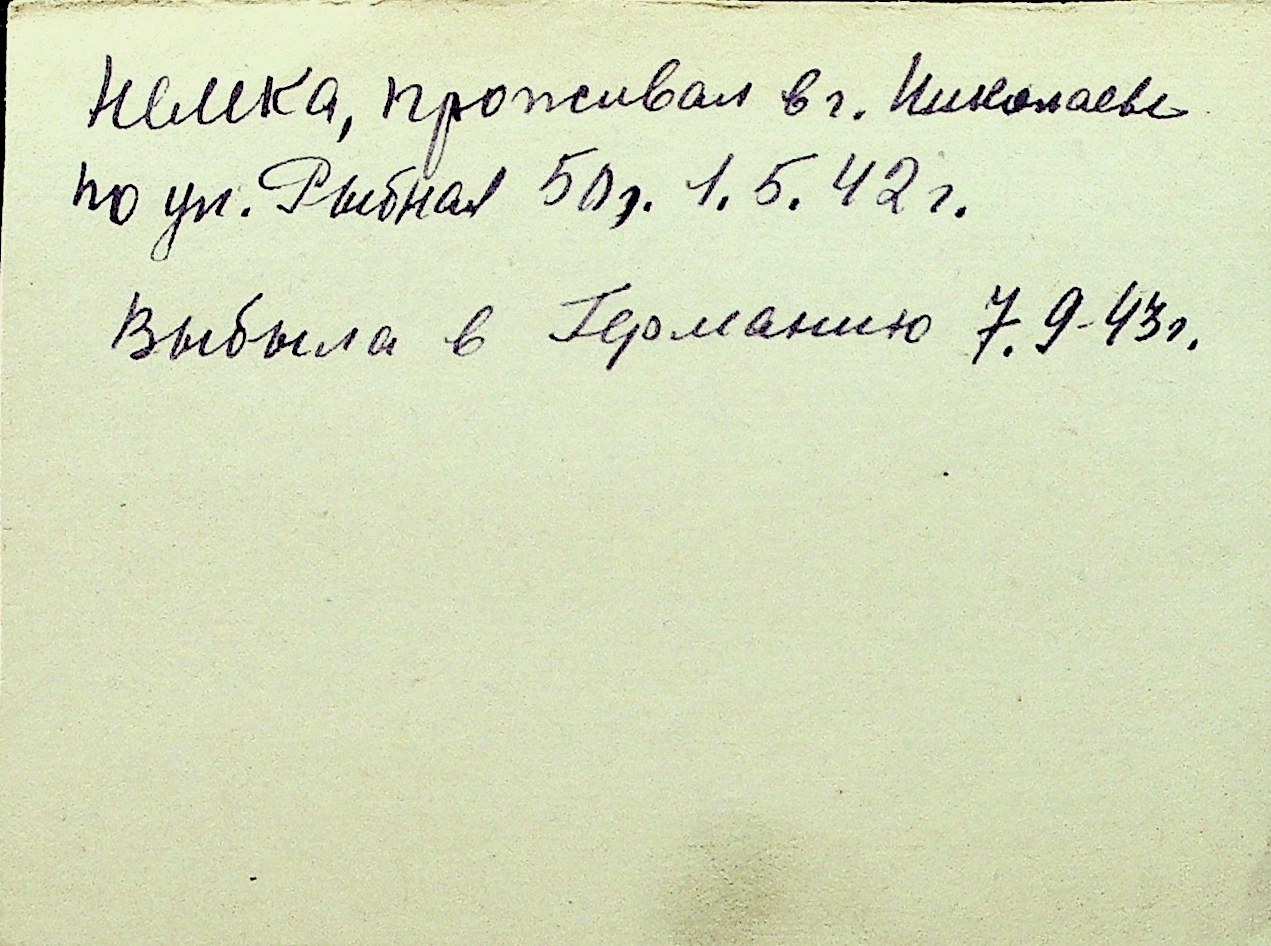 Немка, проживал в г. Николаеве
по ул. Рыбная 50, 1.5.42 г.
Выбыла в Германию 7.9-43г.